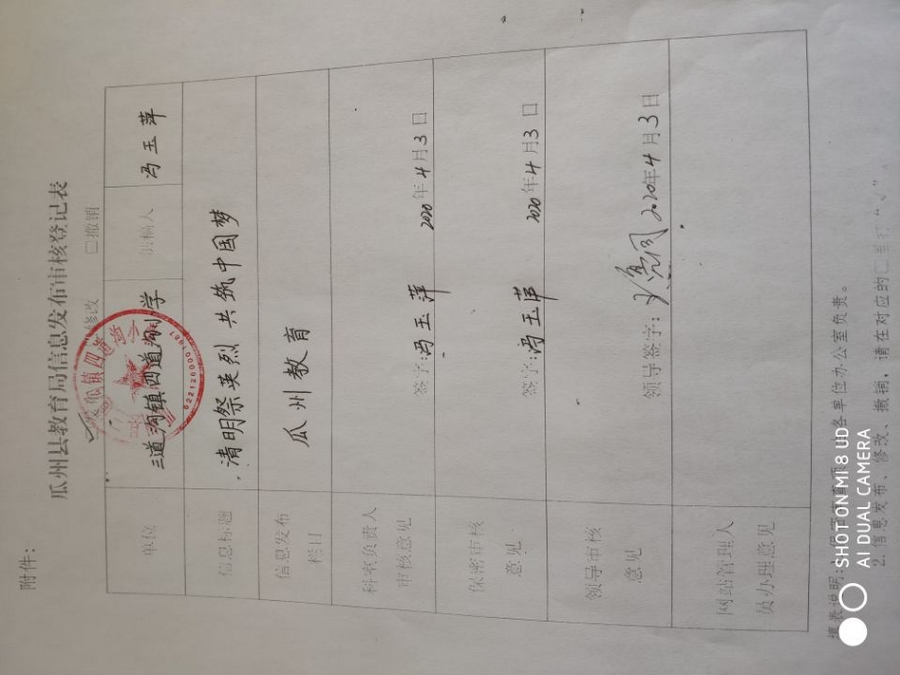 附件：
瓜州县教育局信息发布审核登记表
修改 □撤销
单位 三道沟镇四道沟小学 供稿人 冯玉萍
信息标题 清明祭英烈 共筑中国梦
信息发布栏目 瓜州教育
科室负责人审核意见 签字：冯玉萍 2020年4月3日
保密审核意见 签字：冯玉萍 2020年4月3日
领导审核意见 领导签字： 2020年4月3日
网站管理人员办理意见
填表说明：
各单位办公室负责。
2. 信息发布、修改、撤销，请在对应的□里打“√”。
SHOT ON MI 8 UD
AI DUAL CAMERA